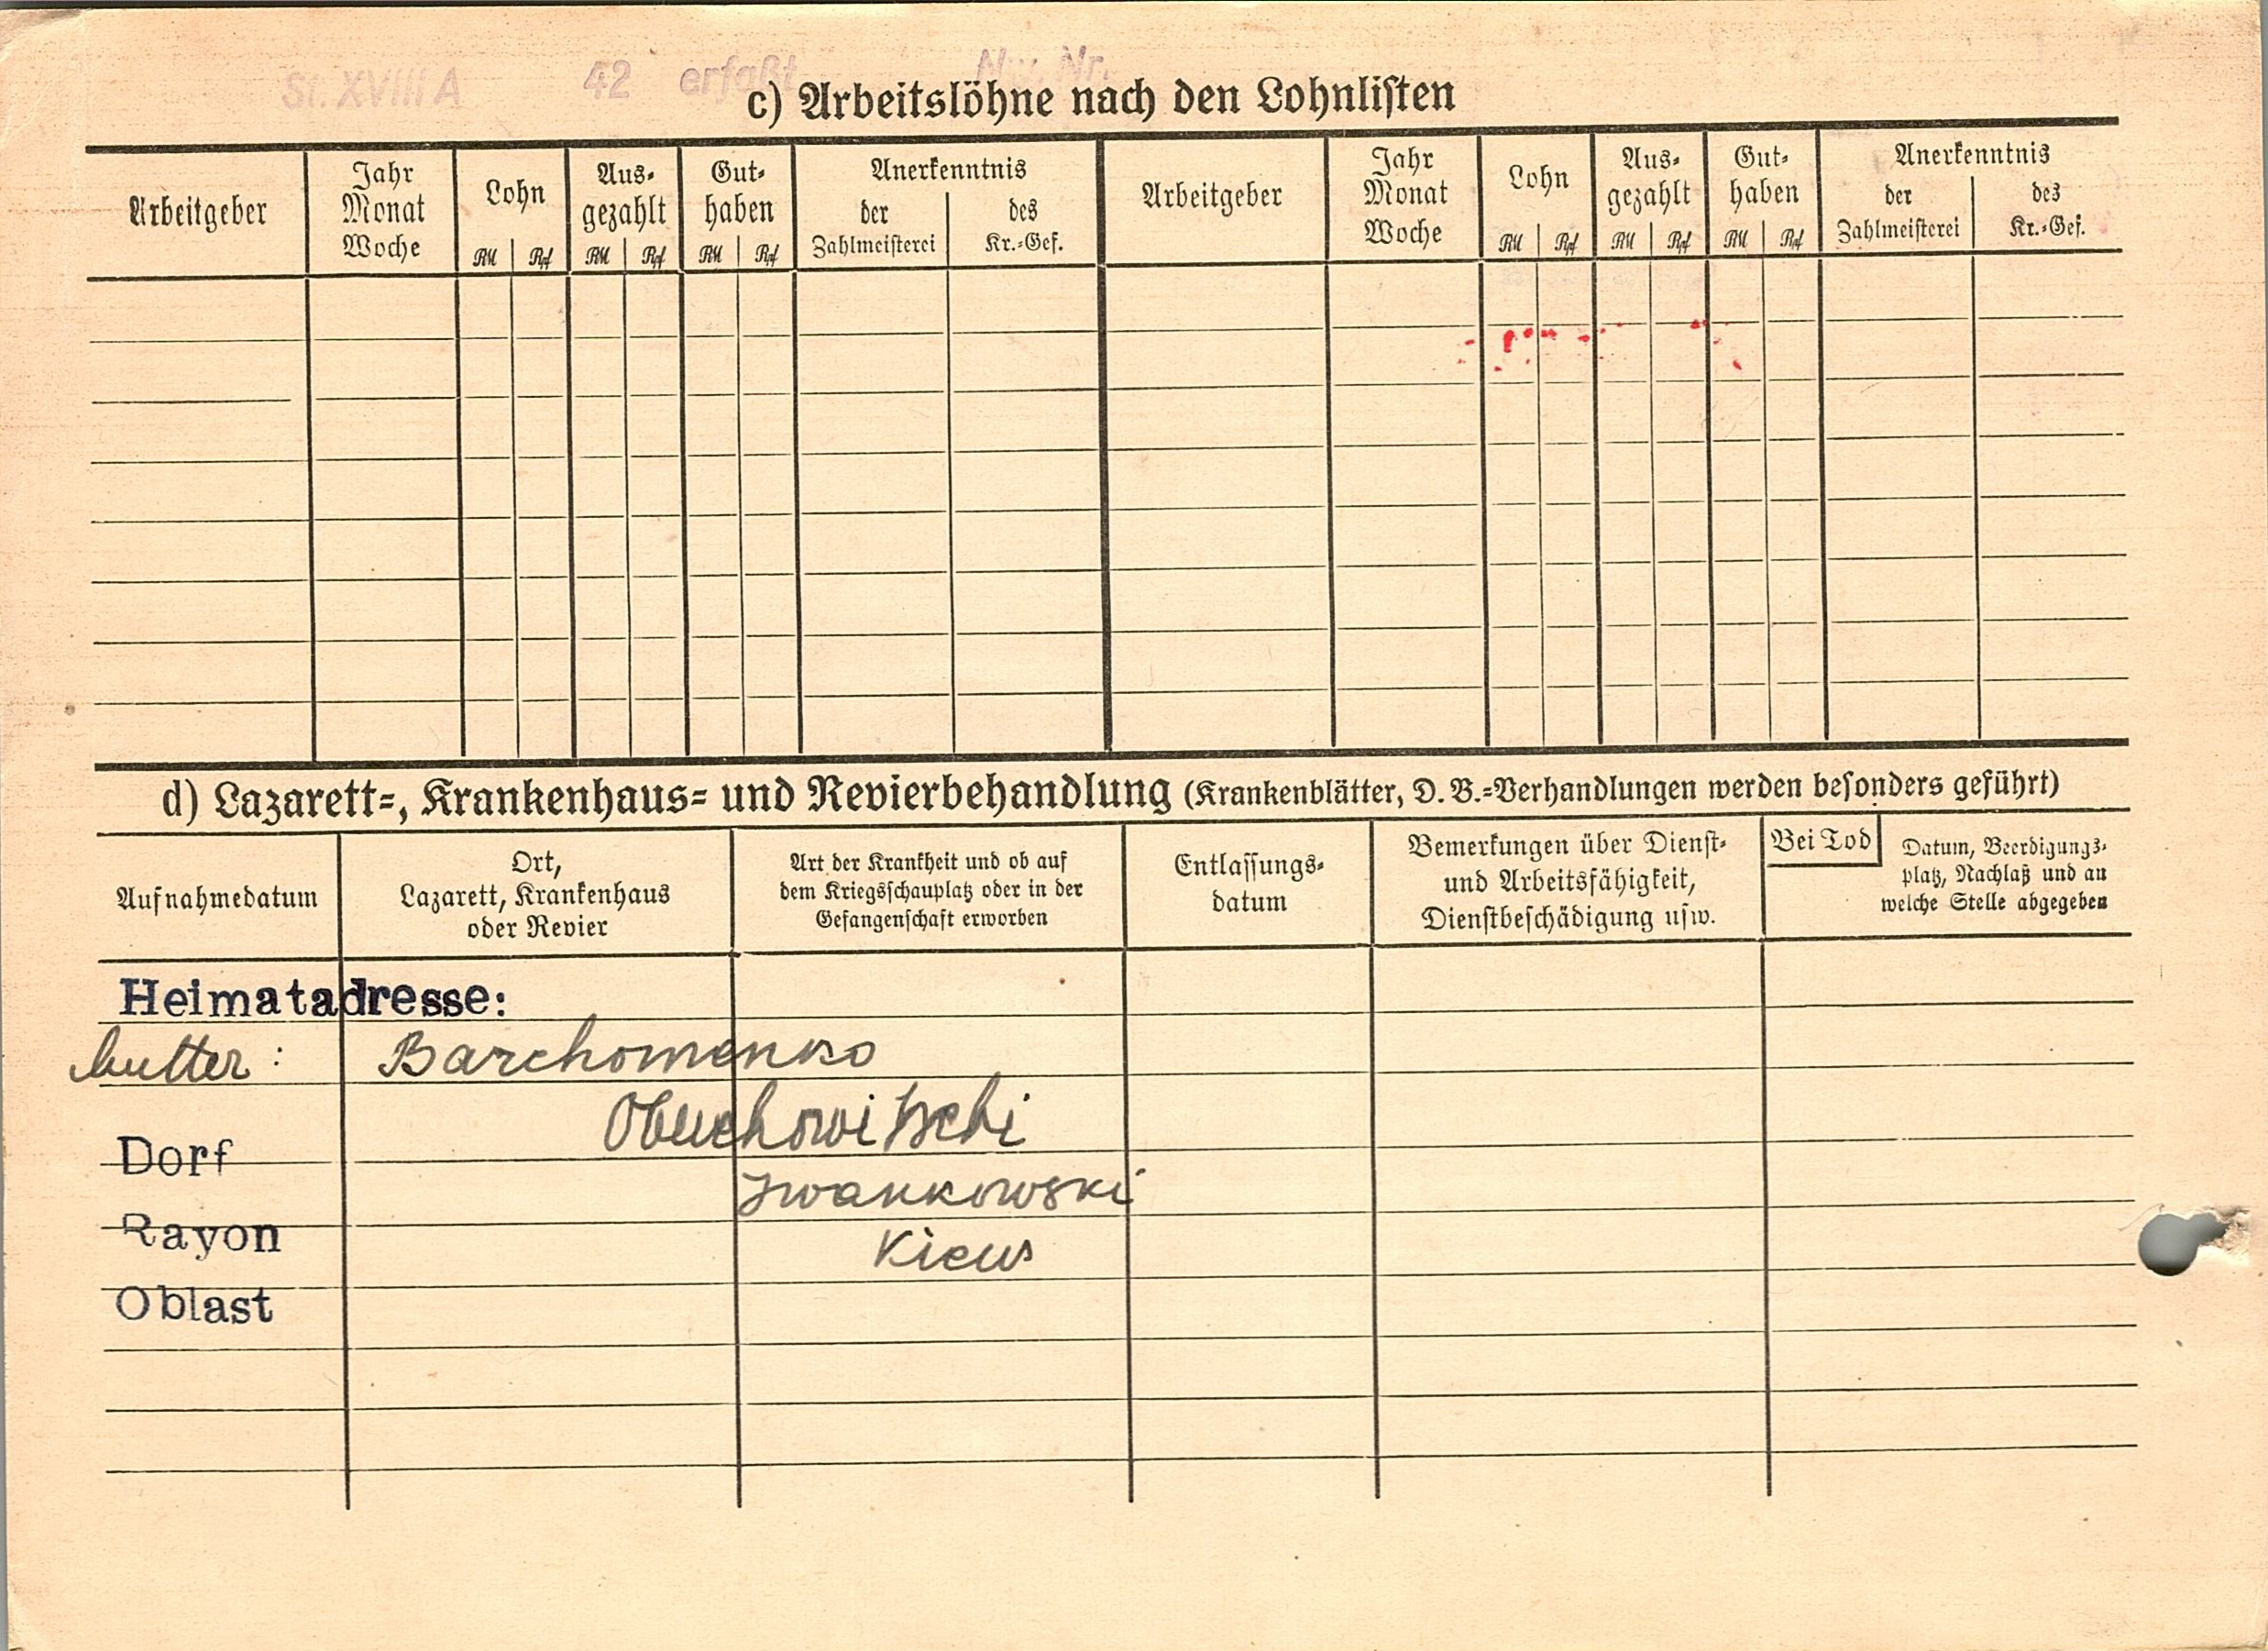 St. XVIII A 42 erfaßt Nw. Nr.
c) Arbeitslöhne nach den Lohnlisten
Arbeitgeber Jahr Monat Woche Lohn Aus- gezahlt Gut- haben Anerkenntnis Arbeitgeber Jahr Monat Woche Lohn Aus- gezahlt Gut- haben Anerkenntnis
RM Rpf RM Rpf RM Rpf der Zahlmeisterei des Kr.-Gef. RM Rpf RM Rpf RM Rpf der Zahlmeisterei des Kr.-Gef.
d) Lazarett-, Krankenhaus- und Revierbehandlung (Krankenblätter, D. B.-Verhandlungen werden besonders geführt)
Aufnahmedatum
Ort,
Lazarett, Krankenhaus
oder Revier
Art der Krankheit und ob auf
dem Kriegsschauplatz oder in der
Gefangenschaft erworben
Entlassungs-
datum
Bemerkungen über Dienst-
und Arbeitsfähigkeit,
Dienstbeschädigung usw.
Bei Tod
Datum, Beerdigungs-
platz, Nachlaß und an
welche Stelle abgegeben
Heimatadresse:
Mutter: Barchomenko
Dorf Obuchowitschi
Rayon Iwankowski
Oblast Kiew